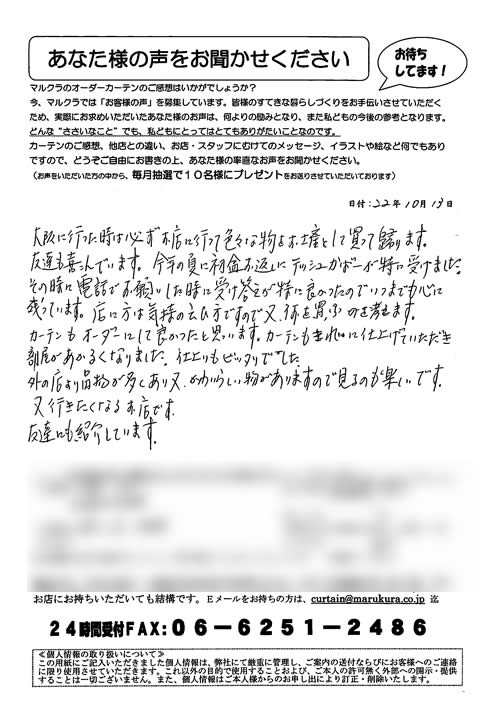 あなた様の声をお聞かせください
お待ち
してます！
マルクラのオーダーカーテンのご感想はいかがでしょうか？
今、マルクラでは「お客様の声」を募集しています。皆様のすてきな暮らしづくりをお手伝いさせていただく
ため、実際にお求めいただいたあなた様のお声は、何よりの励みとなり、また私どもの今後の参考となります。
どんな“ささいなこと”でも、私どもにとってはとてもありがたいことなのです。
カーテンのご感想、他店との違い、お店・スタッフにむけてのメッセージ、イラストや絵など何でもあり
ですので、どうぞご自由にお書きの上、あなた様の率直なお声をお聞かせください。
（お声をいただいた方の中から、毎月抽選で１０名様にプレゼントをお送りさせていただいております）
日付：22年10月13日
大阪に行った時は必ずお店に行って色々な物をお土産として買って帰ります。
友達も喜んでいます。今年の夏に初盆お返しにティッシュカバーが特に受けました。
その時に電話でお願いした時に受け答えが特に良かったのでいつまでも心に
残っています。店に方は気持の云い方ですので又、何を買ふのを考えます。
カーテンもオーダーにして良かったと思います。カーテンもきれいに仕上げていただき
部屋があかるくなりました。仕上りもピッタリでした。
外の店より品物が多くあり又、かわいらしい物がありますので見るのも楽しいです。
又行きたくなるお店です。
友達にも紹介しています。
お店にお持ちいただいても結構です。Ｅメールをお持ちの方は、curtain@marukura.co.jp 迄
２４時間受付ＦＡＸ：０６－６２５１－２４８６
≪個人情報の取り扱いについて≫
この用紙にご記入いただきました個人情報は、弊社にて厳重に管理し、ご案内の送付ならびにお客様へのご連絡
に限り使用させていただきます。これ以外の目的で使用することおよび、ご本人の許可無く外部への開示・提供
することは一切ございません。また、個人情報はご本人様からのお申し出により訂正・削除いたします。